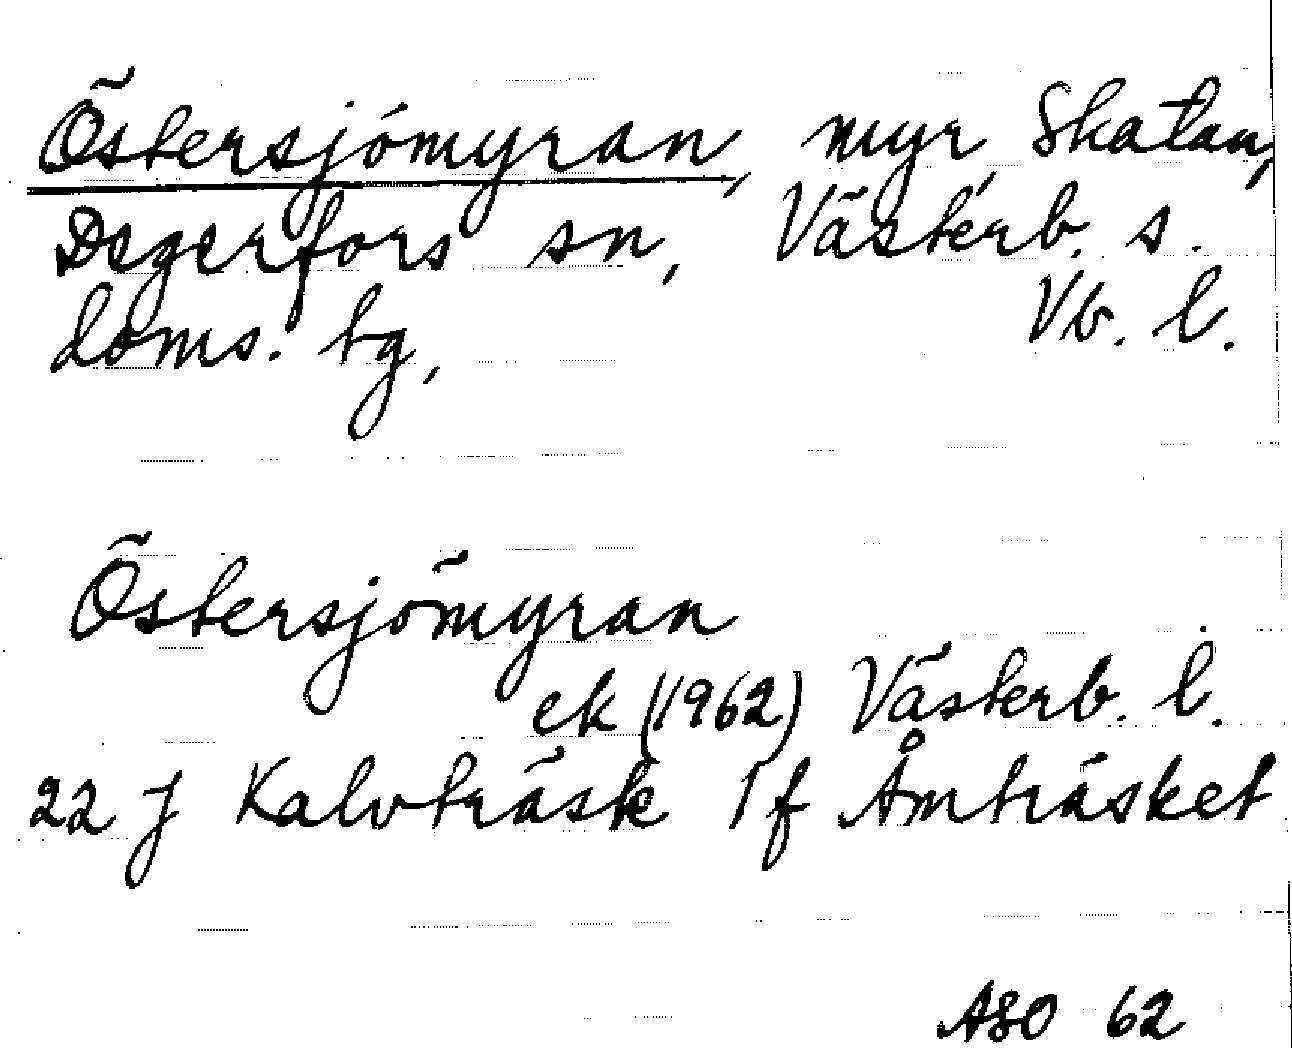 Östersjömyran, myr, Skatan,
Degerfors sn, Västerb. s.
doms. bg, Vb. l.
Östersjömyran
ek (1962) Västerb. l.
22 J Kalvträsk 1f Åmträsket
ASO 62